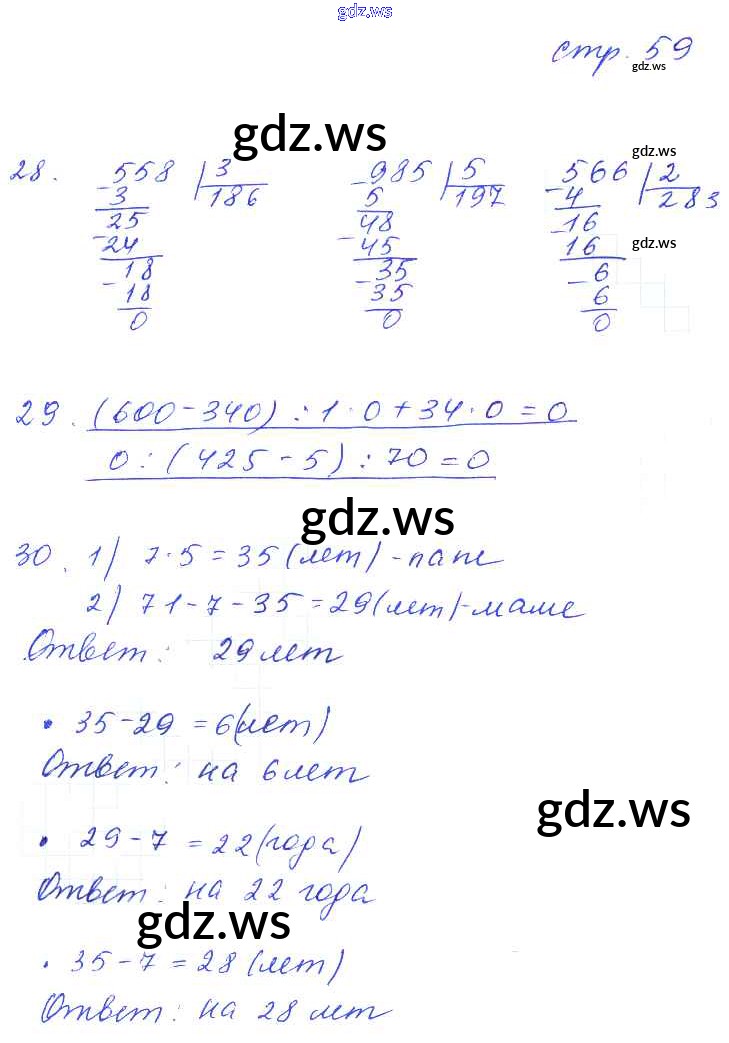 gdz.ws
стр. 59
gdz.ws
gdz.ws
gdz.ws
28. 558 | 3    985 | 5    566 | 2
-3 186    5 197    -4 283
25    48    16
-24    -45    -16
18    35    6
-18    -35    -6
0    0    0
29. (600-340) : 1 · 0 + 34 · 0 = 0
0 : (425 - 5) : 70 = 0
gdz.ws
30. 1) 7·5 = 35 (лет) - папе
2) 71-7-35 = 29 (лет) - маме
Ответ: 29 лет
• 35-29 = 6 (лет)
Ответ: на 6 лет
gdz.ws
• 29-7 = 22 (года)
Ответ: на 22 года
gdz.ws
• 35-7 = 28 (лет)
Ответ: на 28 лет